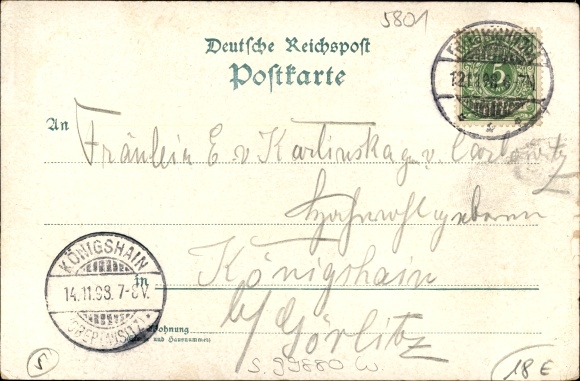 5801
Deutsche Reichspost
Postkarte
5
12.11.98.
An
Fräulein E. v Karlinska g. v. Carlowitz
Hochwohlgeboren
KÖNIGSHAIN
14.11.98. 7-8V.
(OBERLAUSITZ)
in
Königshain
b/ Görlitz
Wohnung
(Straße und Hausnummer)
5
18 E